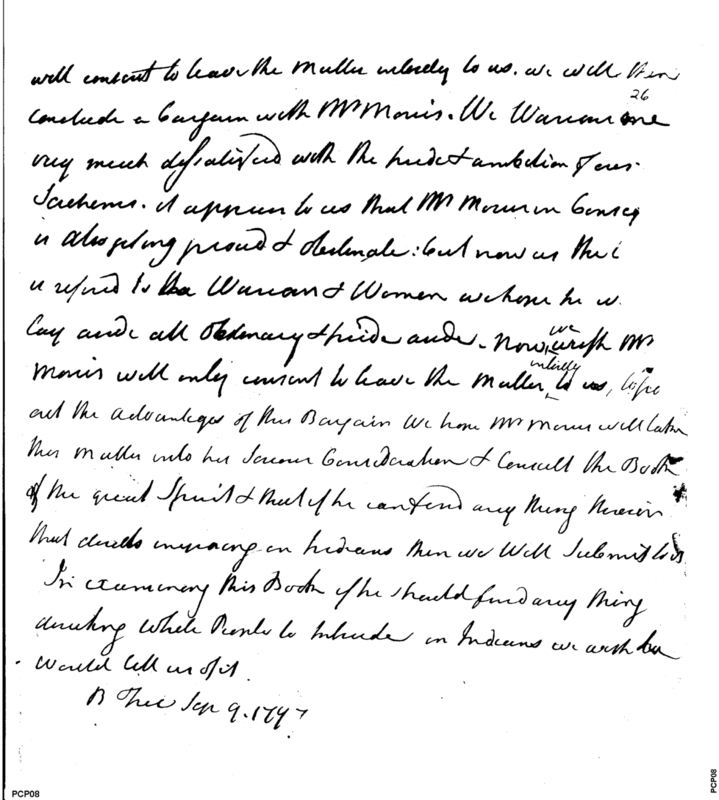 will consent to leave the Matter intirely to us. we will then
conclude a Bargain with Mr Morris. We Warriors are
26
very much dissatisfied with the pride & ambition of our
Sachems. it appears to us that Mr Morris in Conseq
is also getting proud & obstinate: but now as the
is refered to the Warriors & Women we hope he w
lay aside all Obstinacy & pride aside. Now, we wish Mr
Morris will only consent to leave the Matter intirely to us,
out the advantages of this Bargain We hope Mr Morris will take
this Matter into his Serious Consideration & Consult the Book
of the great Spirit & that if he can find any thing therein
that directs imposing on Indians then we Will Submit to it
In examining this Book if he should find any thing
directing White People to Intrude on Indians we wish he
would tell us of it
Sep 9. 1797
PCP08
PCP08